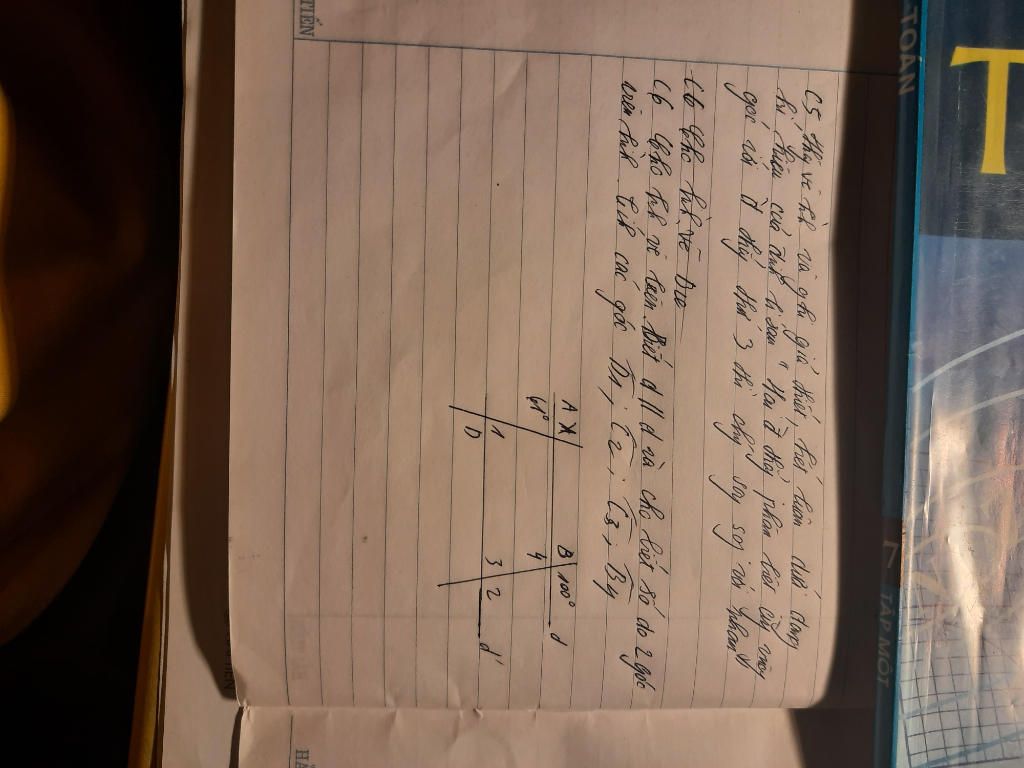 C5 Hãy vẽ hình và ghi giả thiết, kết luận dưới dạng
kí hiệu của định lí sau " Hai đ thẳng phân biệt cùng vuông
góc với đ thẳng thứ 3 thì chúng song song với nhau"
C6 Cho hình vẽ Dra
C6 Cho hình vẽ bên Biết d // d' và cho biết số đo 2 góc
trên hình tính các góc D1; C2; C3; B4
A B 100° d
61° 4
1 3 2 d'
D
TOÁN
T
7 TẬP MỘT
TIẾN